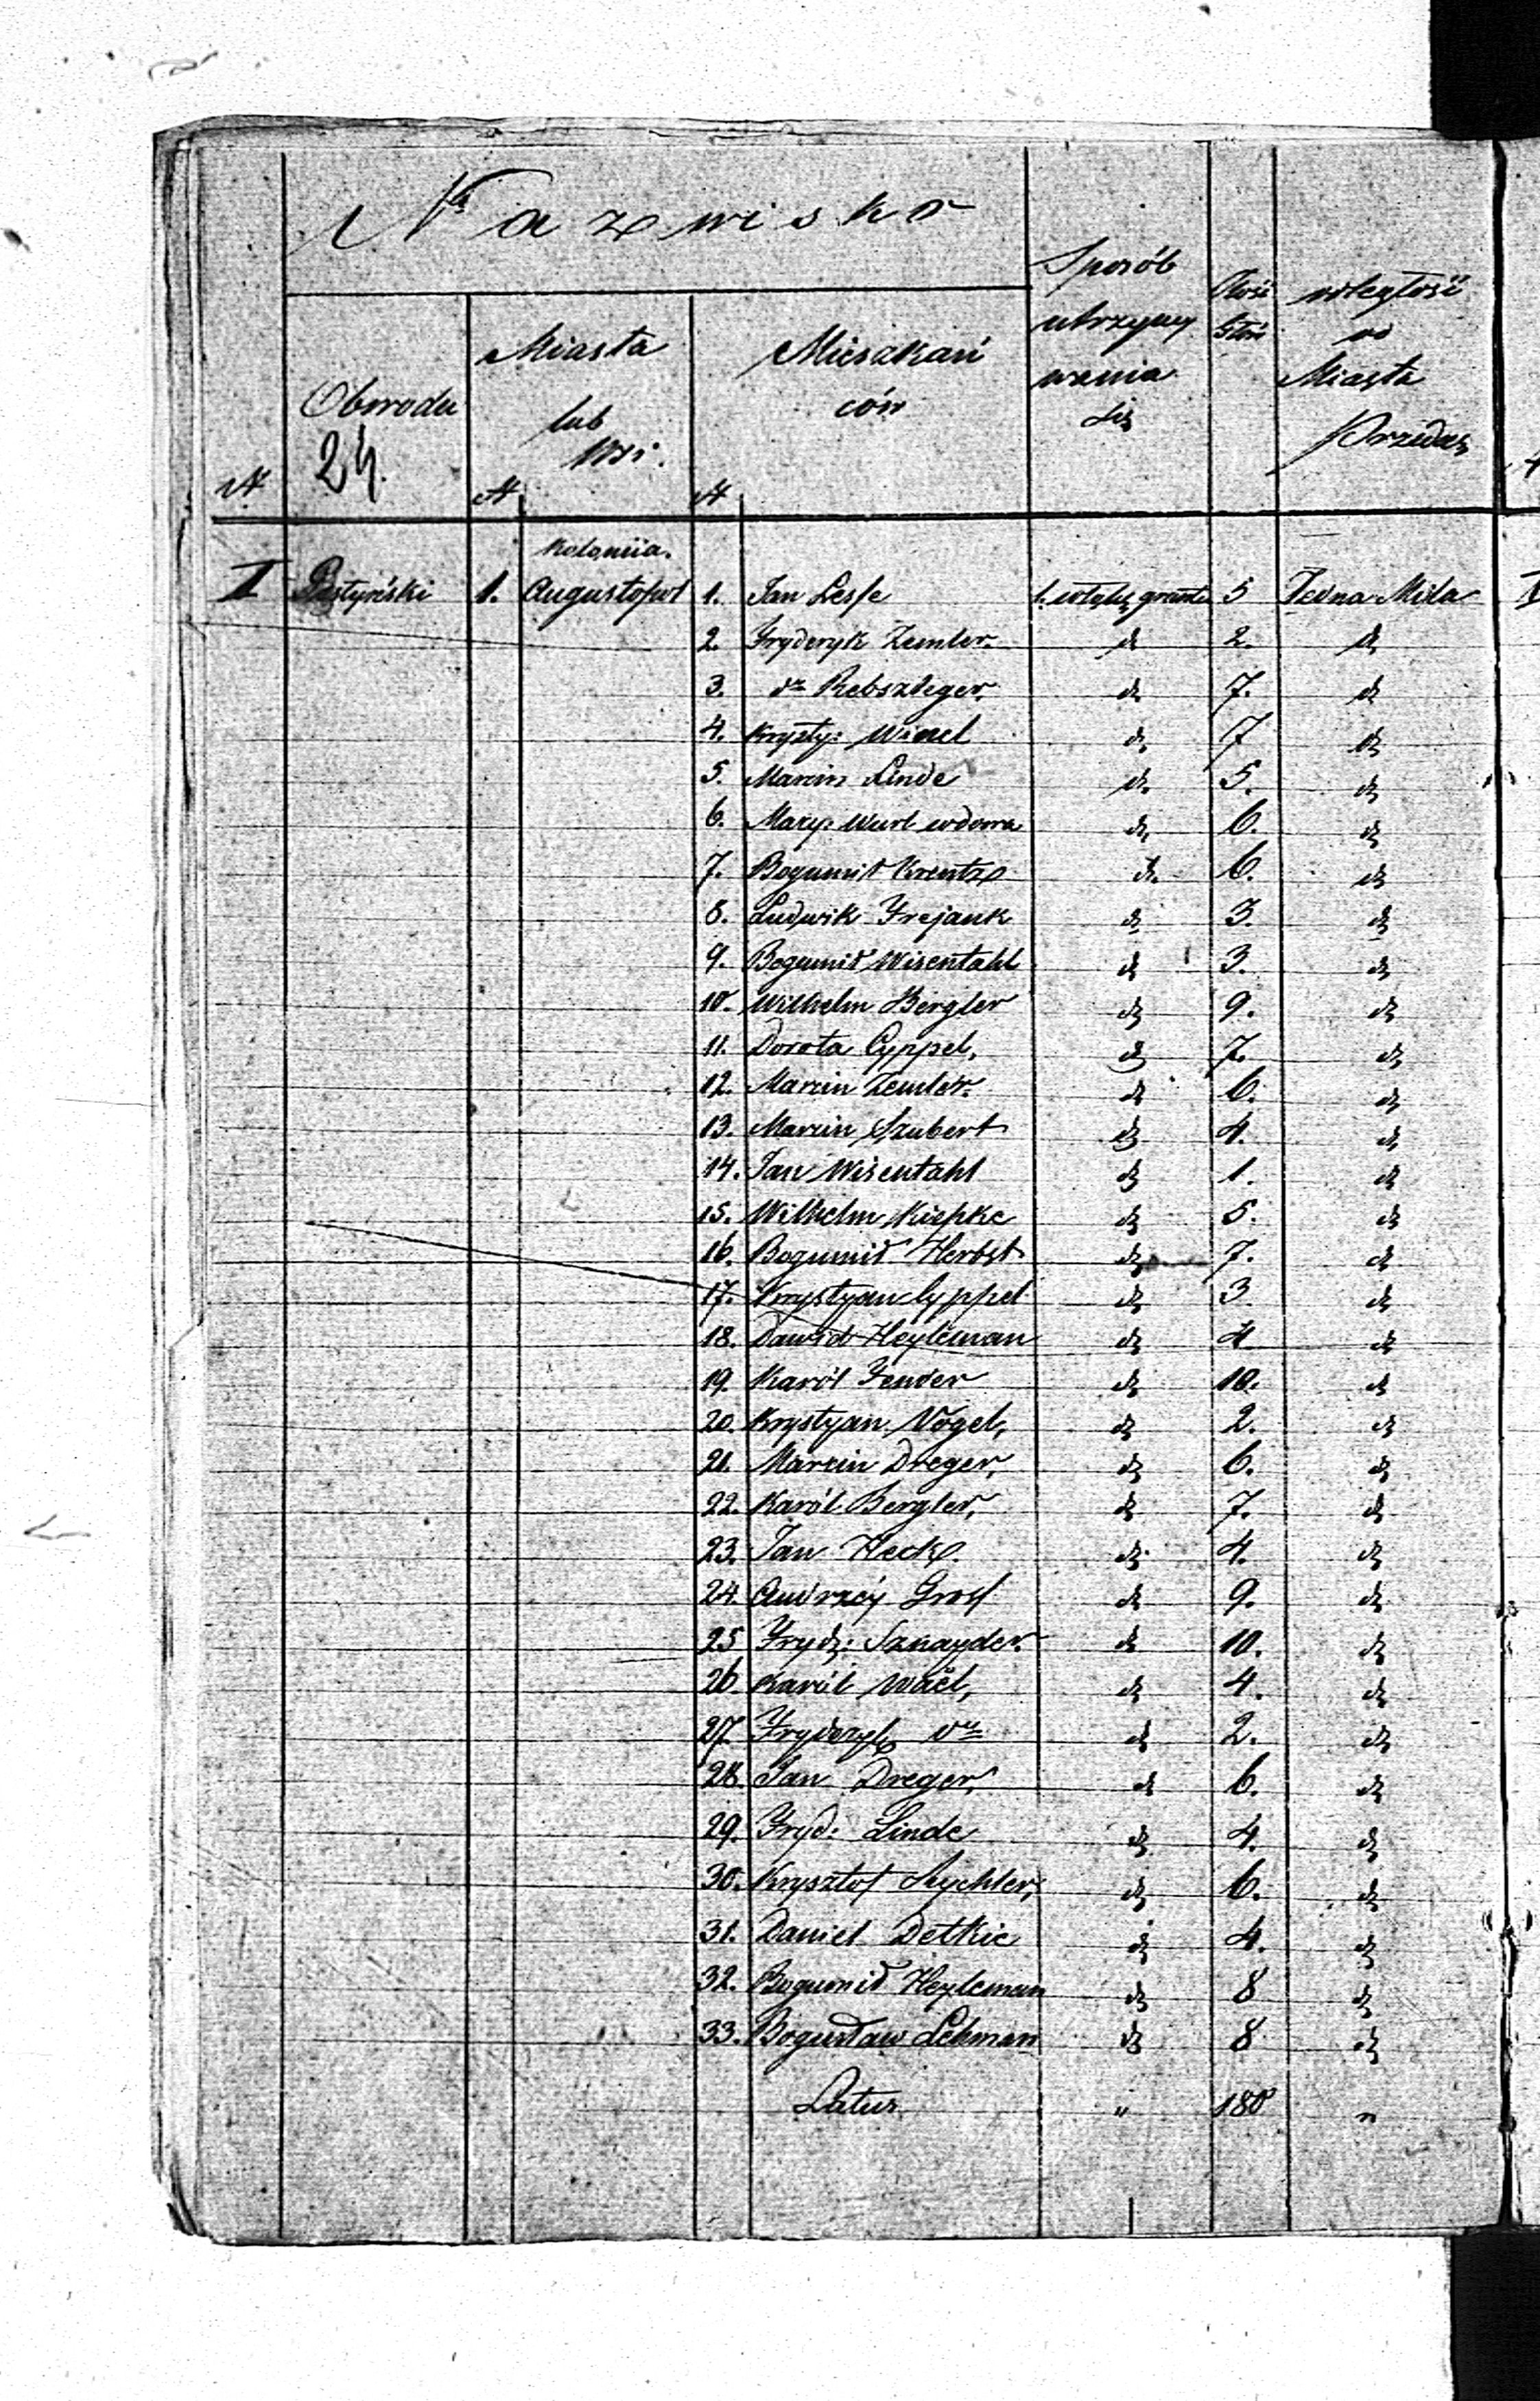 Nazwisko
Obwodu
24.
Miasta
lub
Wsi.
Mieszkań
ców
Sposób
utrzymy
wania
się
Ilość
odległość
od
Miasta
Przedecz
N
N
N
Kolonia.
I 1. Augustopol 1. Jan Lesse 5 Jedna Mila
2. Fryderyk Zemler. d 2. d
3. dto Rebszleger d 7. d
4. Krysty: Winel d 7 d
5. Marcin Linde d 5. d
6. Mary: Wurl wdowa d 6. d
7. Bogumił Krentz d 6. d
8. Ludwik Frejank d 3. d
9. Bogumił Wisentahl d 3. d
10. Wilhelm Bergler d 9. d
11. Dorota Cyppel, d 7. d
12. Marcin Zemler. d 6. d
13. Marcin Szubert d 4. d
14. Jan Wisentahl d 1. d
15. Wilhelm Kiepke d 5. d
16. Bogumił Herbst d 7. d
17. Krystyan Cyppel d 3 d
18. Dawid Heyleman d 4 d
19. Karól Fender d 10. d
20. Krystyan Vogel, d 2. d
21. Marcin Dreger, d 6. d
22. Karól Bergler, d 7. d
23. Jan Heck d 4. d
24. Andrzéy Gross d 9. d
25 Fryd: Sznayder d 10. d
26. Karól d 4. d
27 Fryderyk dto d 2. d
28. Jan Dreger, d 6. d
29. Fryd: Linde d 4. d
30. Krysztof Rychter, d 6. d
31. Daniel Detkie d 4. d
32. Bogumił Heyleman d 8 d
33. Bogusław Lehman d 8 d
Latus " 180 "